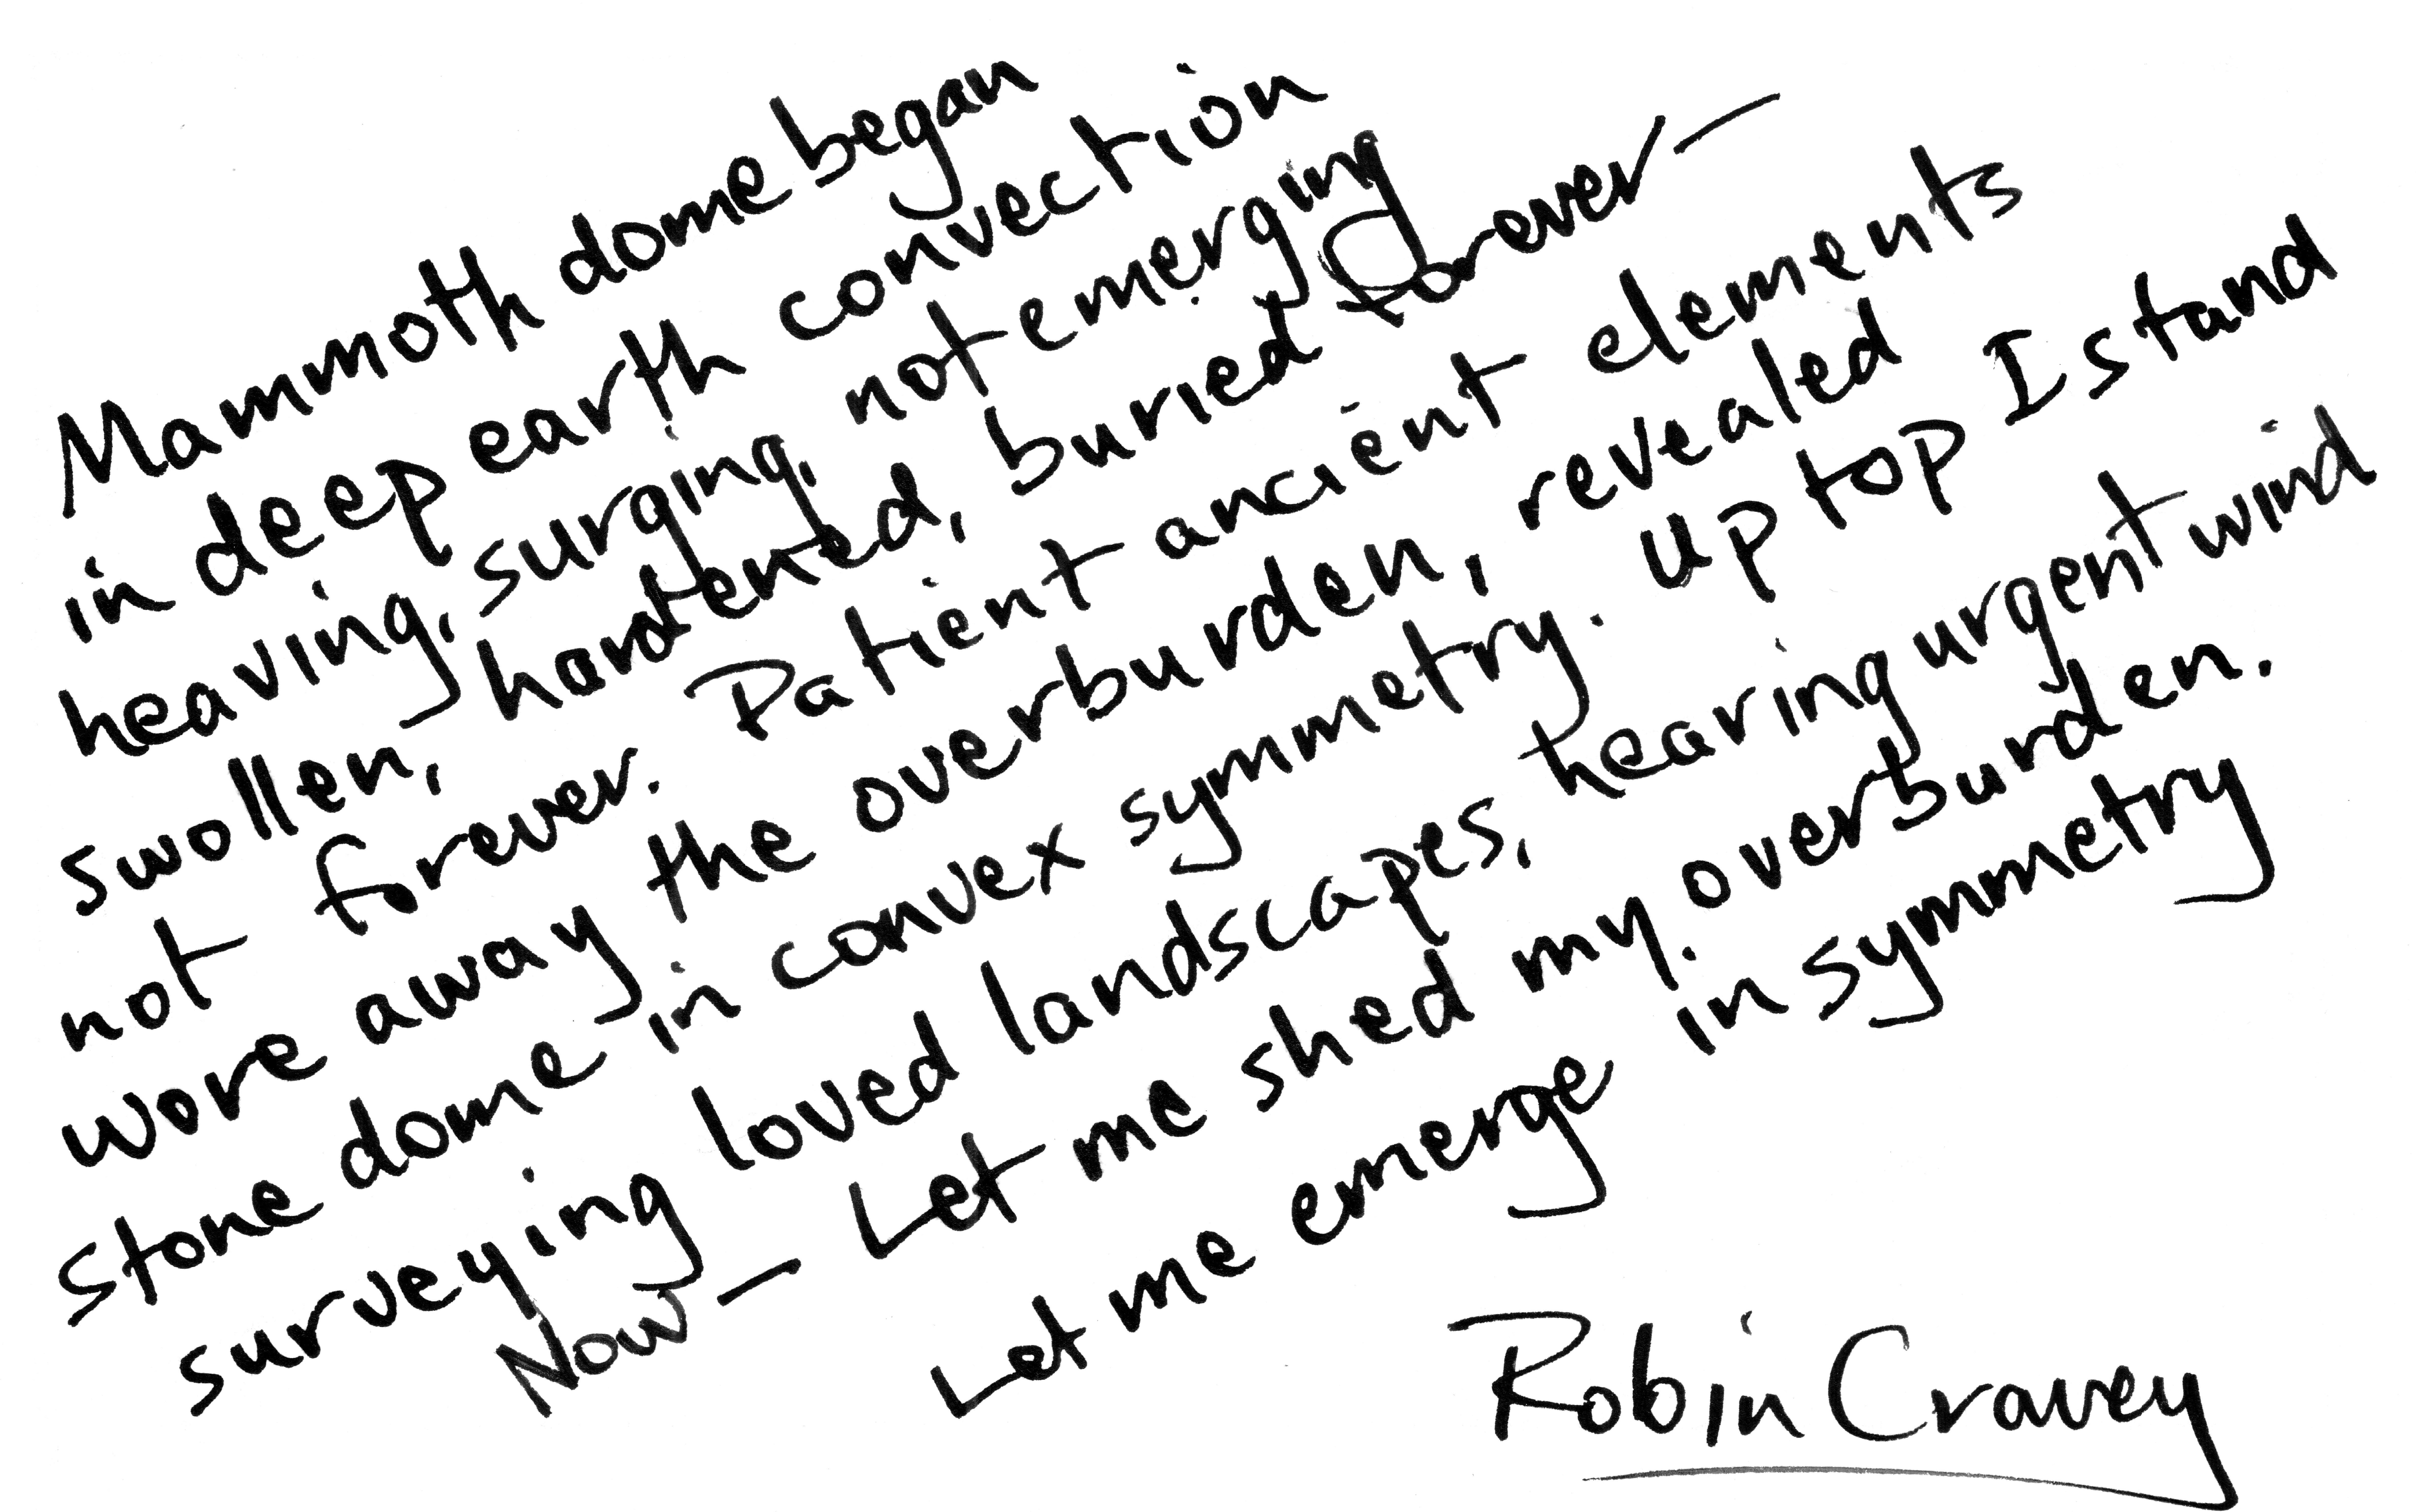 Mammoth dome began
in deep earth convection
heaving, surging, not emerging
swollen, hardened, buried forever—
not forever. Patient ancient elements
wore away the overburden, revealed
stone dome in convex symmetry. Up top I stand
surveying loved landscapes, hearing urgent wind
Now— Let me shed my overburden.
Let me emerge in symmetry
Robin Cravey